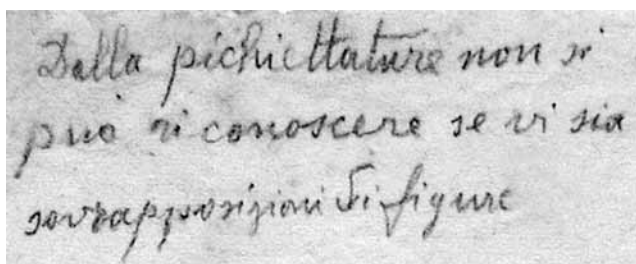 Dalla pichiettature non si
può riconoscere se vi sia
sovrapposizioni di figure